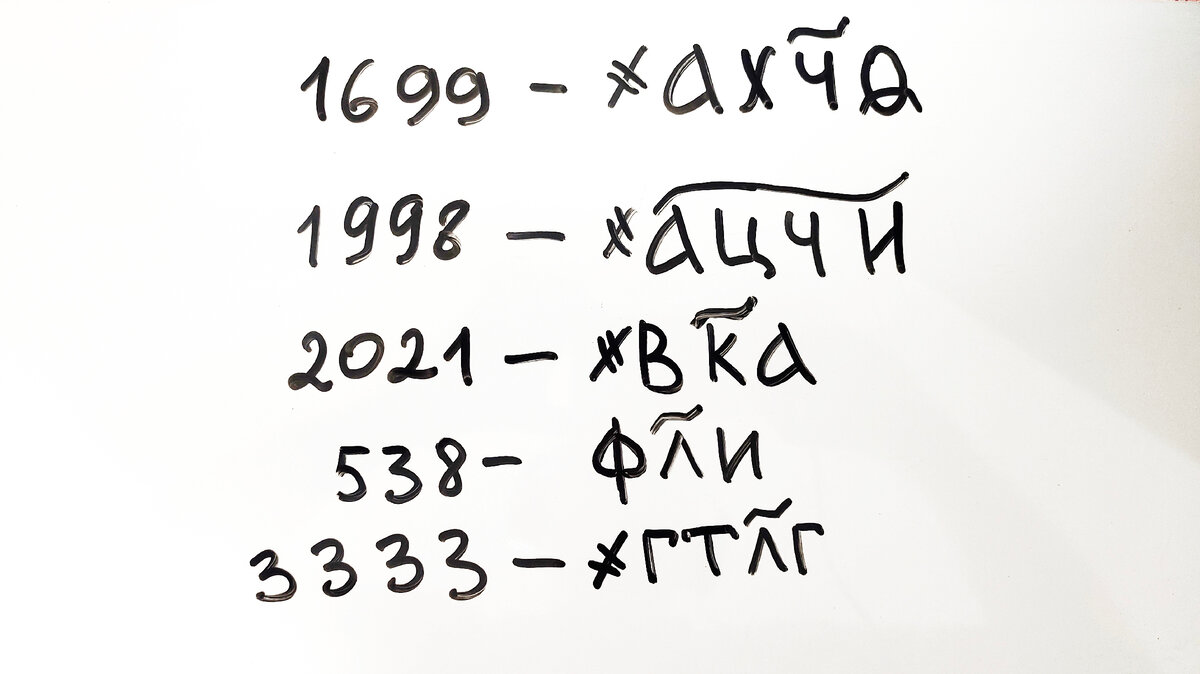 1699 - ҂АХЧ҃Ѳ
1998 - ҂АЦЧ҃И
2021 - ҂ВК҃А
538 - ФЛ҃И
3333 - ҂ГТЛ҃Г